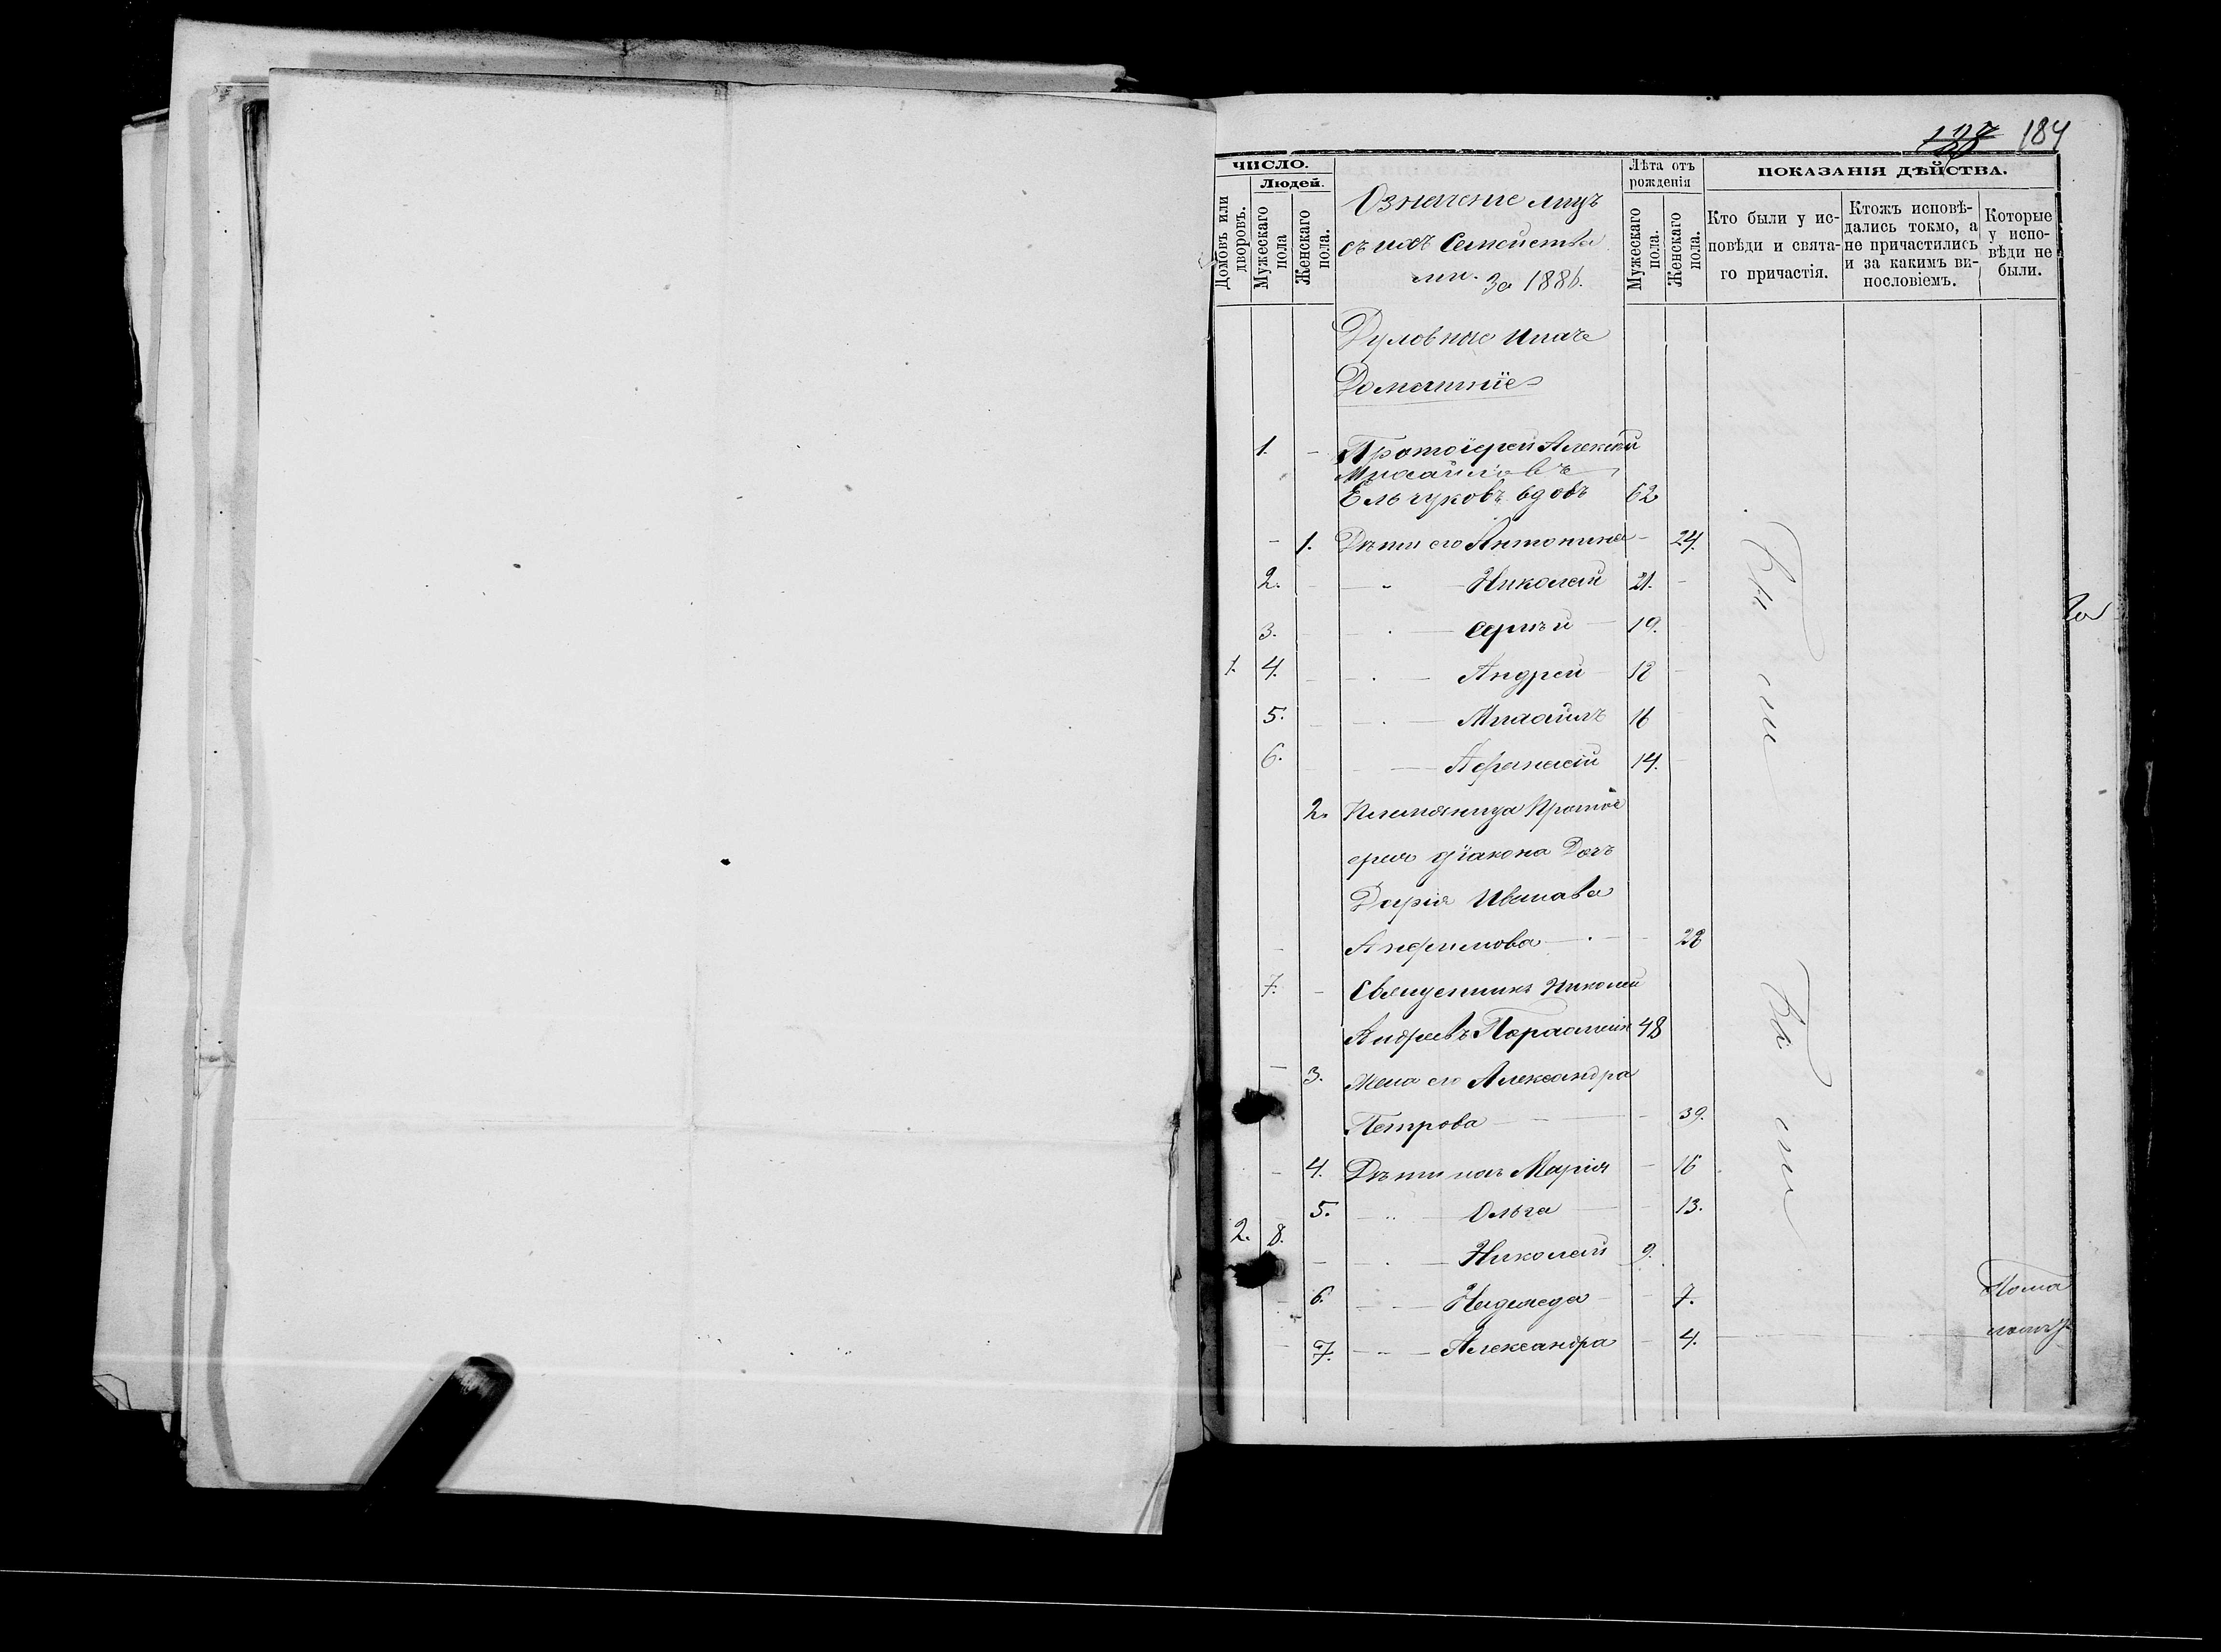 184
ЧИСЛО.
Людей.
Домовъ или дворовъ.
Мужескаго пола
Женскаго пола.
Означеніе лицъ
съ ихъ Семейства
ми. За 1886.
Лѣта отъ рожденія
Мужескаго пола.
Женскаго пола.
ПОКАЗАНІЯ ДѢЙСТВА.
Кто были у ис-
повѣди и свята-
го причастія.
Ктожъ исповѣ-
дались токмо, а
не причастились
и за какимъ ви-
нословіемъ.
Которые
у испо-
вѣди не
были.
Духовные и ихъ
Домашніе
1. - Протоіерей Алексѣй
Михайловъ
Ельчуковъ вдовъ 62
- 1. Дѣти его Антонина - 24.
2. - Николай 21. -
3. - Сергѣй 19.
1. 4. - Андрей 18 -
5. - Михаилъ 16
6. - Афанасій 14. -
2. Племянница Протоі
ерея діакона Дочъ
Дарія Иванова
- Анфимова - 28
7. - Священникъ Николай
Андреевъ 48
- 3. Жена его Александра
Петрова - 39.
- 4. Дѣти ихъ Марія - 16
5. - Ольга - 13.
2. 8. - Николай 9.
6. - Надежда - 7.
- 7. - Александра - 4.
Бы ли
Бы ли